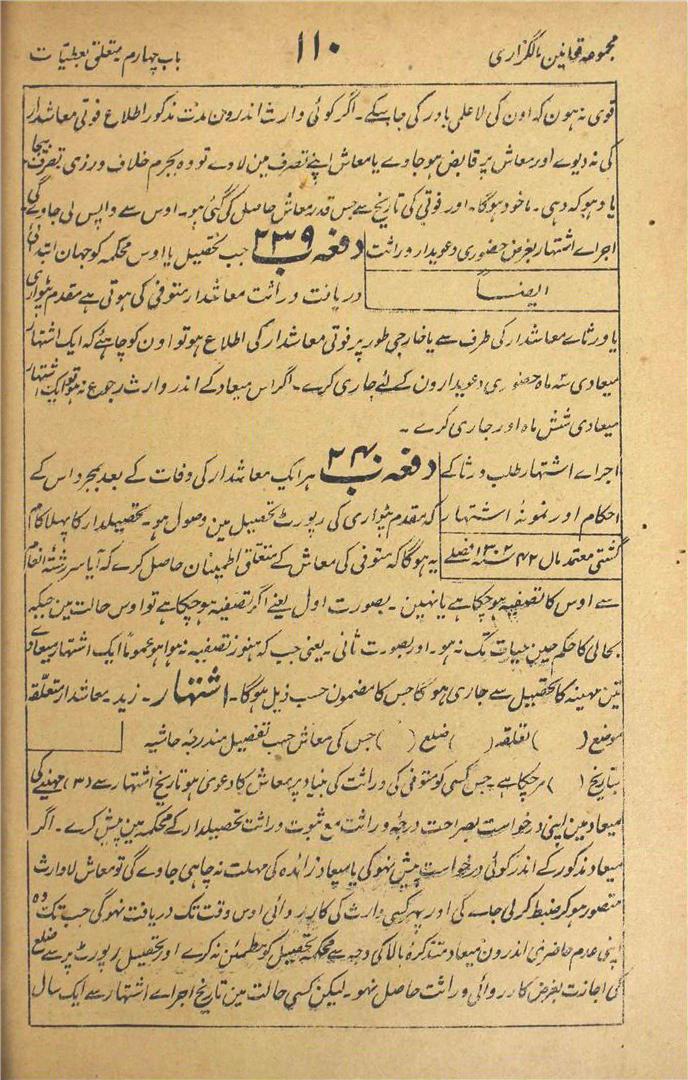 مجموعہ قوانین مالگزاری ۱۱۰ باب چہارم متعلق بعطیات
قوی نہ ہون کہ اون کی لاعلمی باور کی جا سکے۔ اگر کوئی وارث اندرون مدت مذکور اطلاع فوتی معاشدار
کی نہ دیوے اور معاش پر قابض ہو جاوے یا معاش اپنے تصرف مین لاوے تو وہ بجرم خلاف ورزی تصرف بیجا
یا دھوکہ دہی۔ ماخوذ ہوگا۔ اور فوتی کی تاریخ سے جس قدر معاش حاصل کی گئی ہو۔ اوس سے واپس لی جاوے گی
اجراے اشتہار بغرض حضوری دعویدار وراثت دفعہ ۲۳۹ جب تحصیل یا اوس محکمہ کو جہان ابتدائی
ایضاً دریافت وراثت معاشدار متوفی کی ہوتی ہے مقدم پٹواری
یا ورثاے معاشدار کی طرف سے یا خارجی طور پر فوتی معاشدار کی اطلاع ہو تو اون کو چاہئے کہ ایک اشتہار
میعادی سہ ماہ حضوری دعویدارون کے لئے جاری کرے۔ اگر اس میعاد کے اندر وارث رجوع نہ ہو تو ایک اشتہار
میعادی شش ماہ اور جاری کرے۔
اجراے اشتہار طلب ورثا کے دفعہ ۲۴۰ ہر ایک معاشدار کی وفات کے بعد بمجرد اس کے
احکام اور نمونہ اشتہار کہ مقدم پٹواری کی رپورٹ تحصیل مین وصول ہو۔ تحصیلدار کا پہلا کام
گشتی معتمد مال ۴۲ سنہ ۱۳۰۲ فصلے یہ ہوگا کہ متوفی کی معاش کے متعلق اطمینان حاصل کرے کہ آیا سررشتۂ انعام
سے اوس کا تصفیہ ہو چکا ہے یا نہین۔ بصورت اول یعنے اگر تصفیہ ہو چکا ہے تو اوس حالت مین جبکہ
بحالی کا حکم حین حیات تک نہ ہو۔ اور بصورت ثانی۔ یعنی جب کہ ہنوز تصفیہ نہ ہوا ہو عموماً ایک اشتہار میعادے
تین مہینہ کا تحصیل سے جاری ہوگا جس کا مضمون حسب ذیل ہوگا۔ اشتہار۔ زید۔ معاشدار متعلقہ
موضع ( ) تعلقہ ( ) ضلع ( ) جس کی معاش حسب تفصیل مندرجۂ حاشیہ
بتاریخ ( ) مر چکا ہے جس کسی کو متوفی کی وراثت کی بنیاد پر معاش کا دعویٰ ہو تاریخ اشتہار سے (۳) مہینے کی
میعاد مین اپنی درخواست بصراحت درجۂ وراثت مع ثبوت وراثت تحصیلدار کے محکمہ مین پیش کرے۔ اگر
میعاد مذکور کے اندر کوئی درخواست پیش نہوگی یا میعاد زائدہ کی مہلت نہ چاہی جاوے گی تو معاش لاوارث
متصور ہو کر ضبط کر لی جاے گی اور پھر کسی وارث کی کارروائی اوس وقت تک دریافت نہوگی جب تک وہ
اپنی عدم حاضری اندرون میعاد متذکرۂ بالا کی وجہ سے محکمۂ تحصیل کو مطمئن نہ کرے اور تحصیل رپورٹ پر سے ضلع
کی اجازت بغرض کارروائی وراثت حاصل نہو۔ لیکن کسی حالت مین تاریخ اجراے اشتہار سے ایک سال